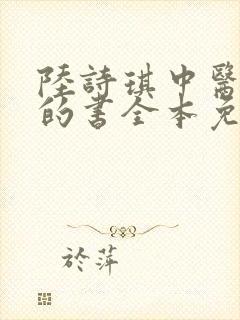 陸詩琪中醫
的書全本免
於萍